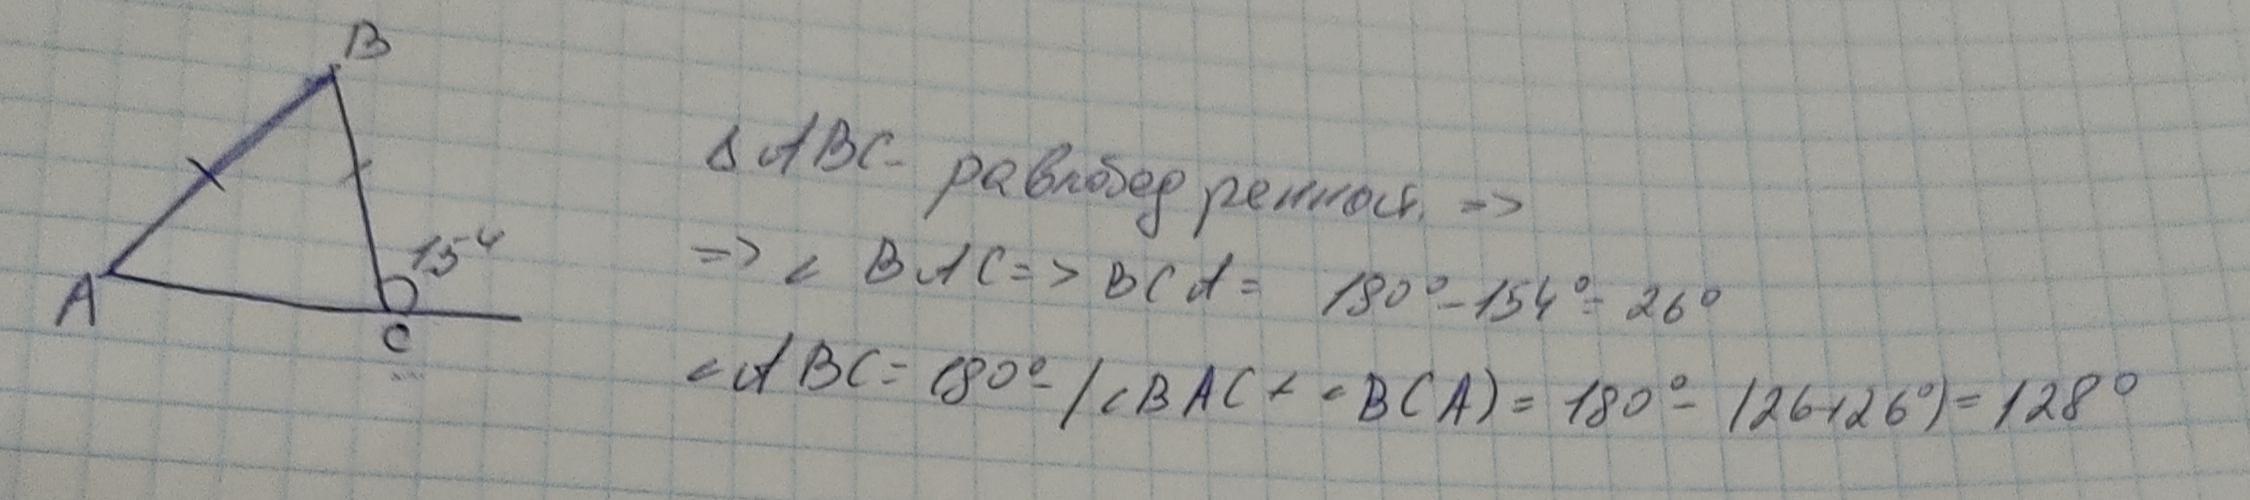 B
A
C
154
∆ABC - равнобедренност. =>
=> < BAC => BCA = 180° - 154° = 26°
<ABC = 180° - (<BAC + <BCA) = 180° - (26+26°) = 128°